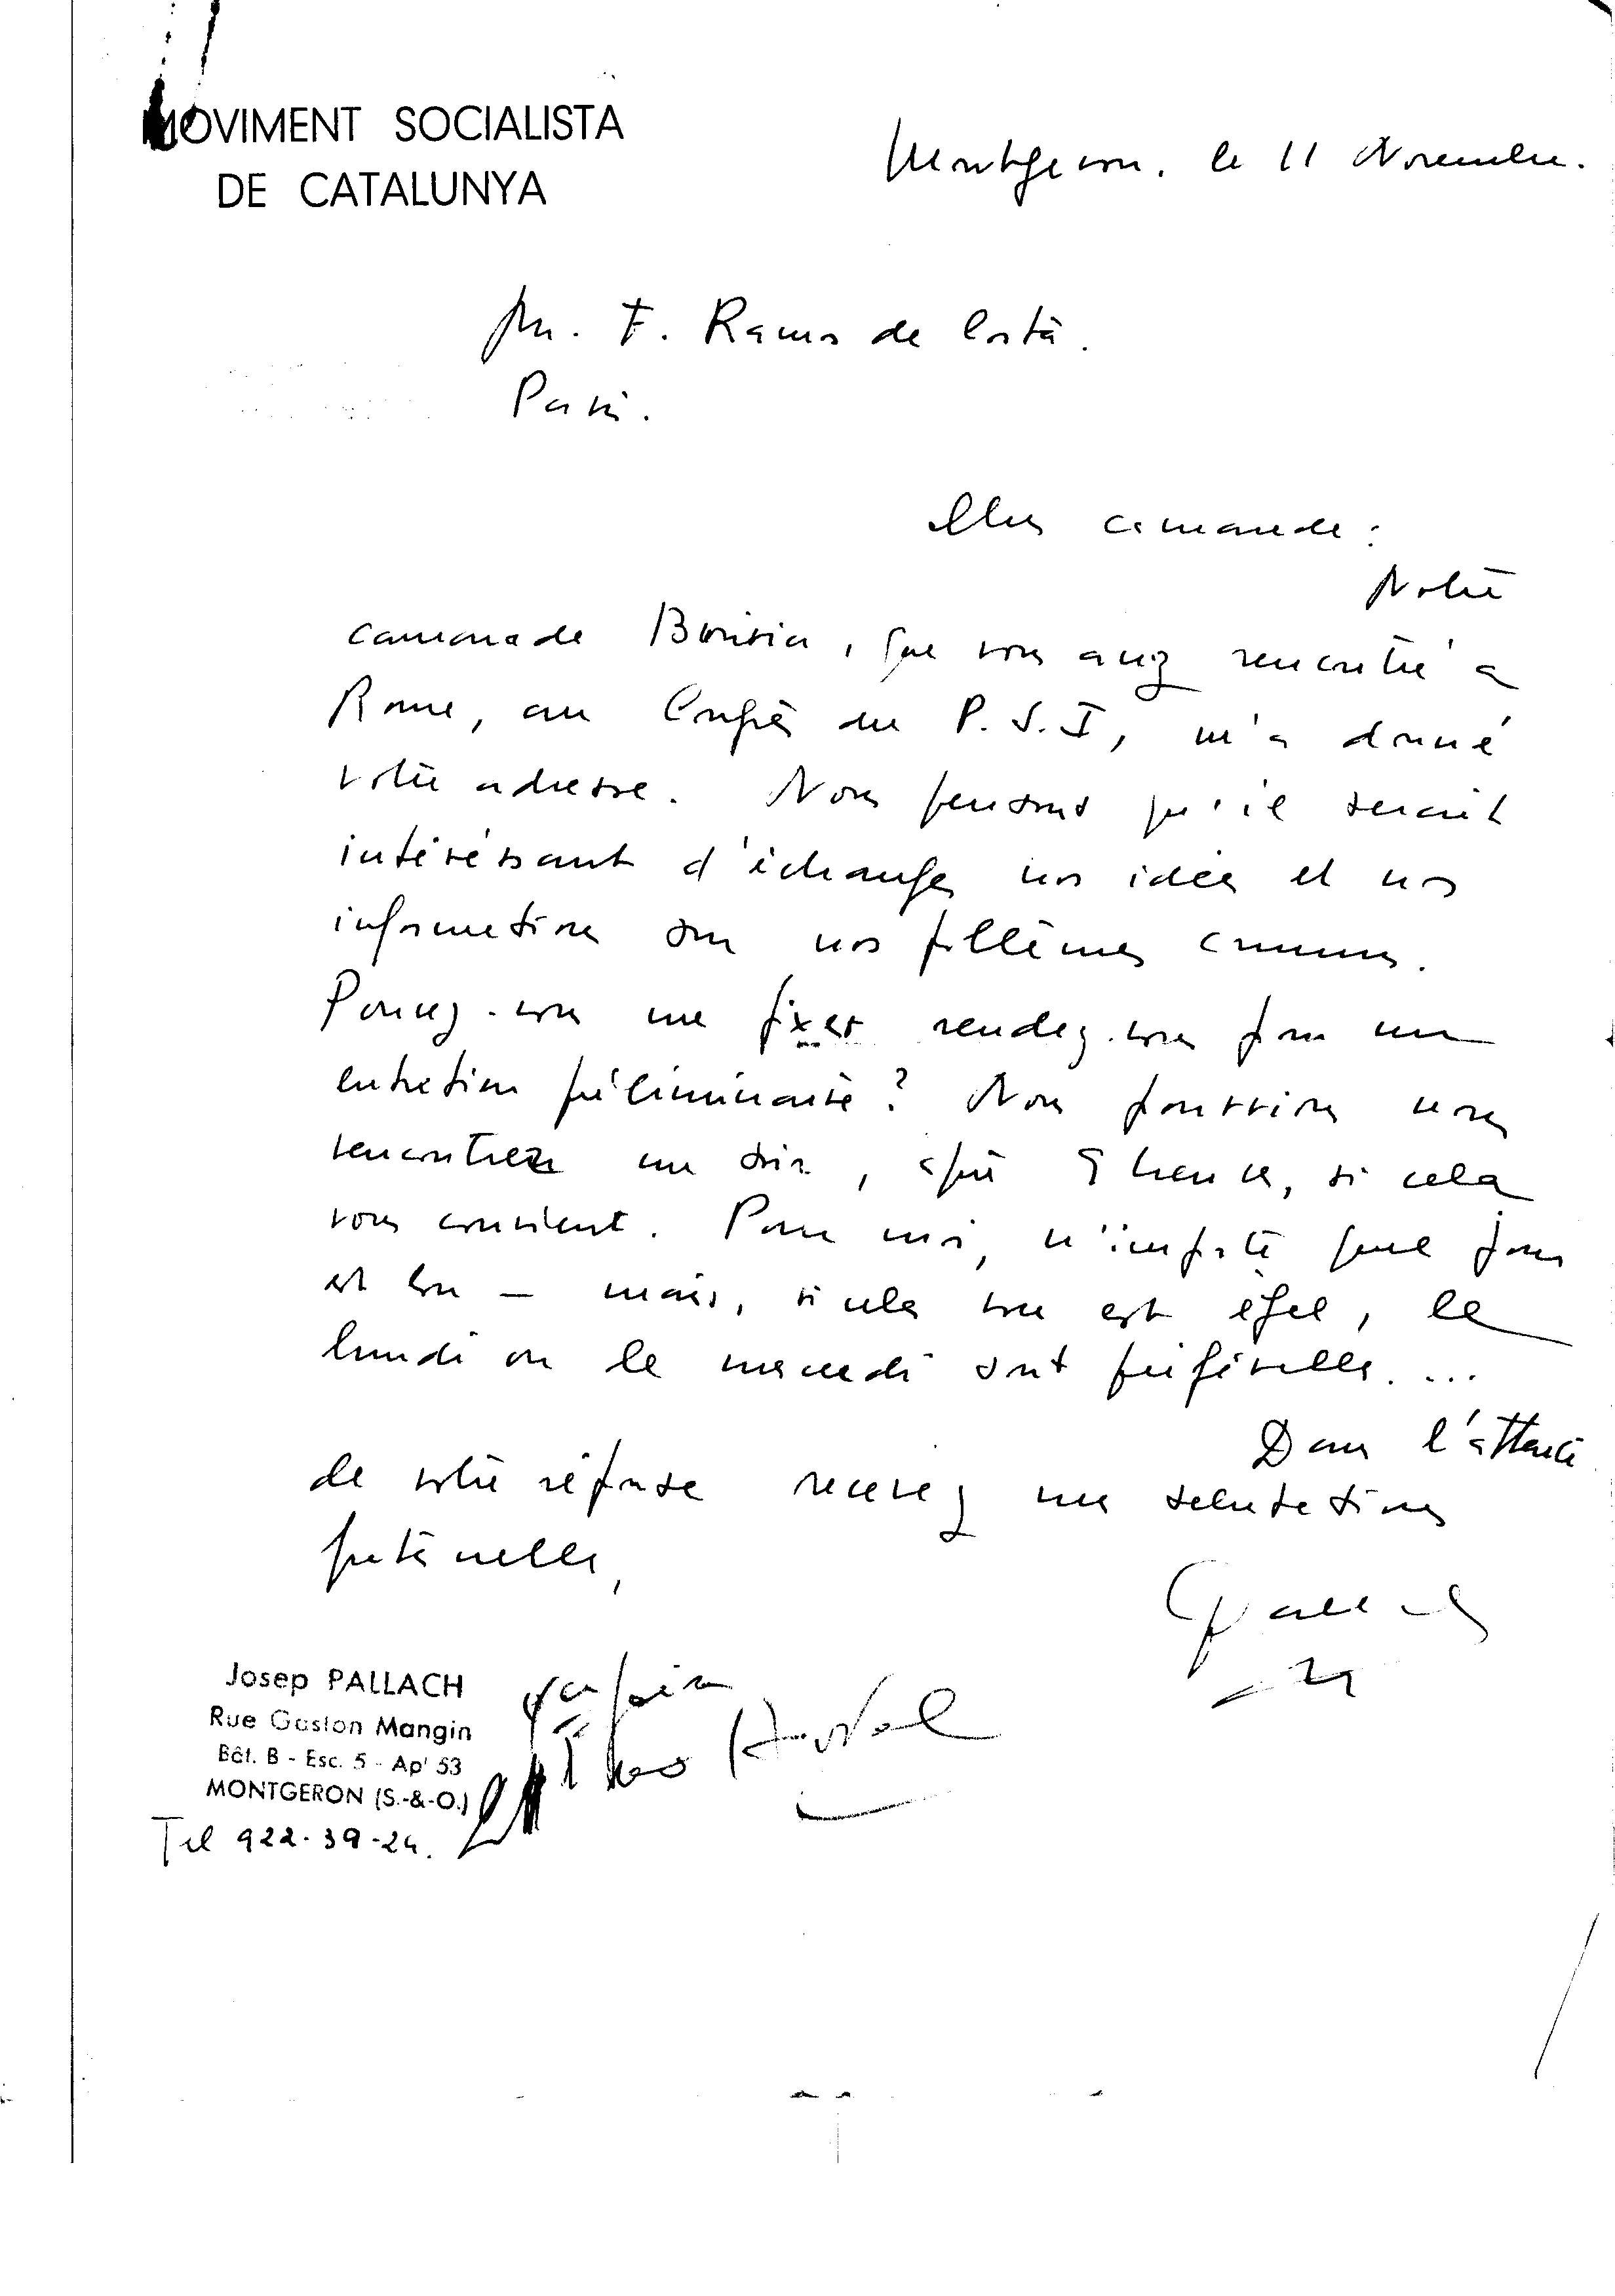 MOVIMENT SOCIALISTA
DE CATALUNYA
Montgeron, le 11 Novembre.
Mr. F. Ramos de Costa.
Paris.
Cher camarade :
Notre
camarade              , que vous avez rencontré a
Rome, au Congrès du P.S.I, m'a donné
votre adresse. Nous pensons qu'il serait
intéréssant d'échanger nos idées et nos
informations sur nos problèmes communs.
Pouvez-vous me fixer rendez-vous pour un
entretien préliminaire ? Nous pourrions nous
rencontrer un soir, après 9 heures, si cela
vous convient. Pour moi, n'importe quel jour
est bon — mais, si cela vous est égal, le
lundi ou le mercredi sont préférables. ...
Dans l'attente
de votre réponse recevez mes salutations
fraternelles,
Pallach
Josep PALLACH
Rue Gaston Mangin
Bât. B - Esc. 5 - Apt 53
MONTGERON (S.-&-O.)
Tel 922-39-24.